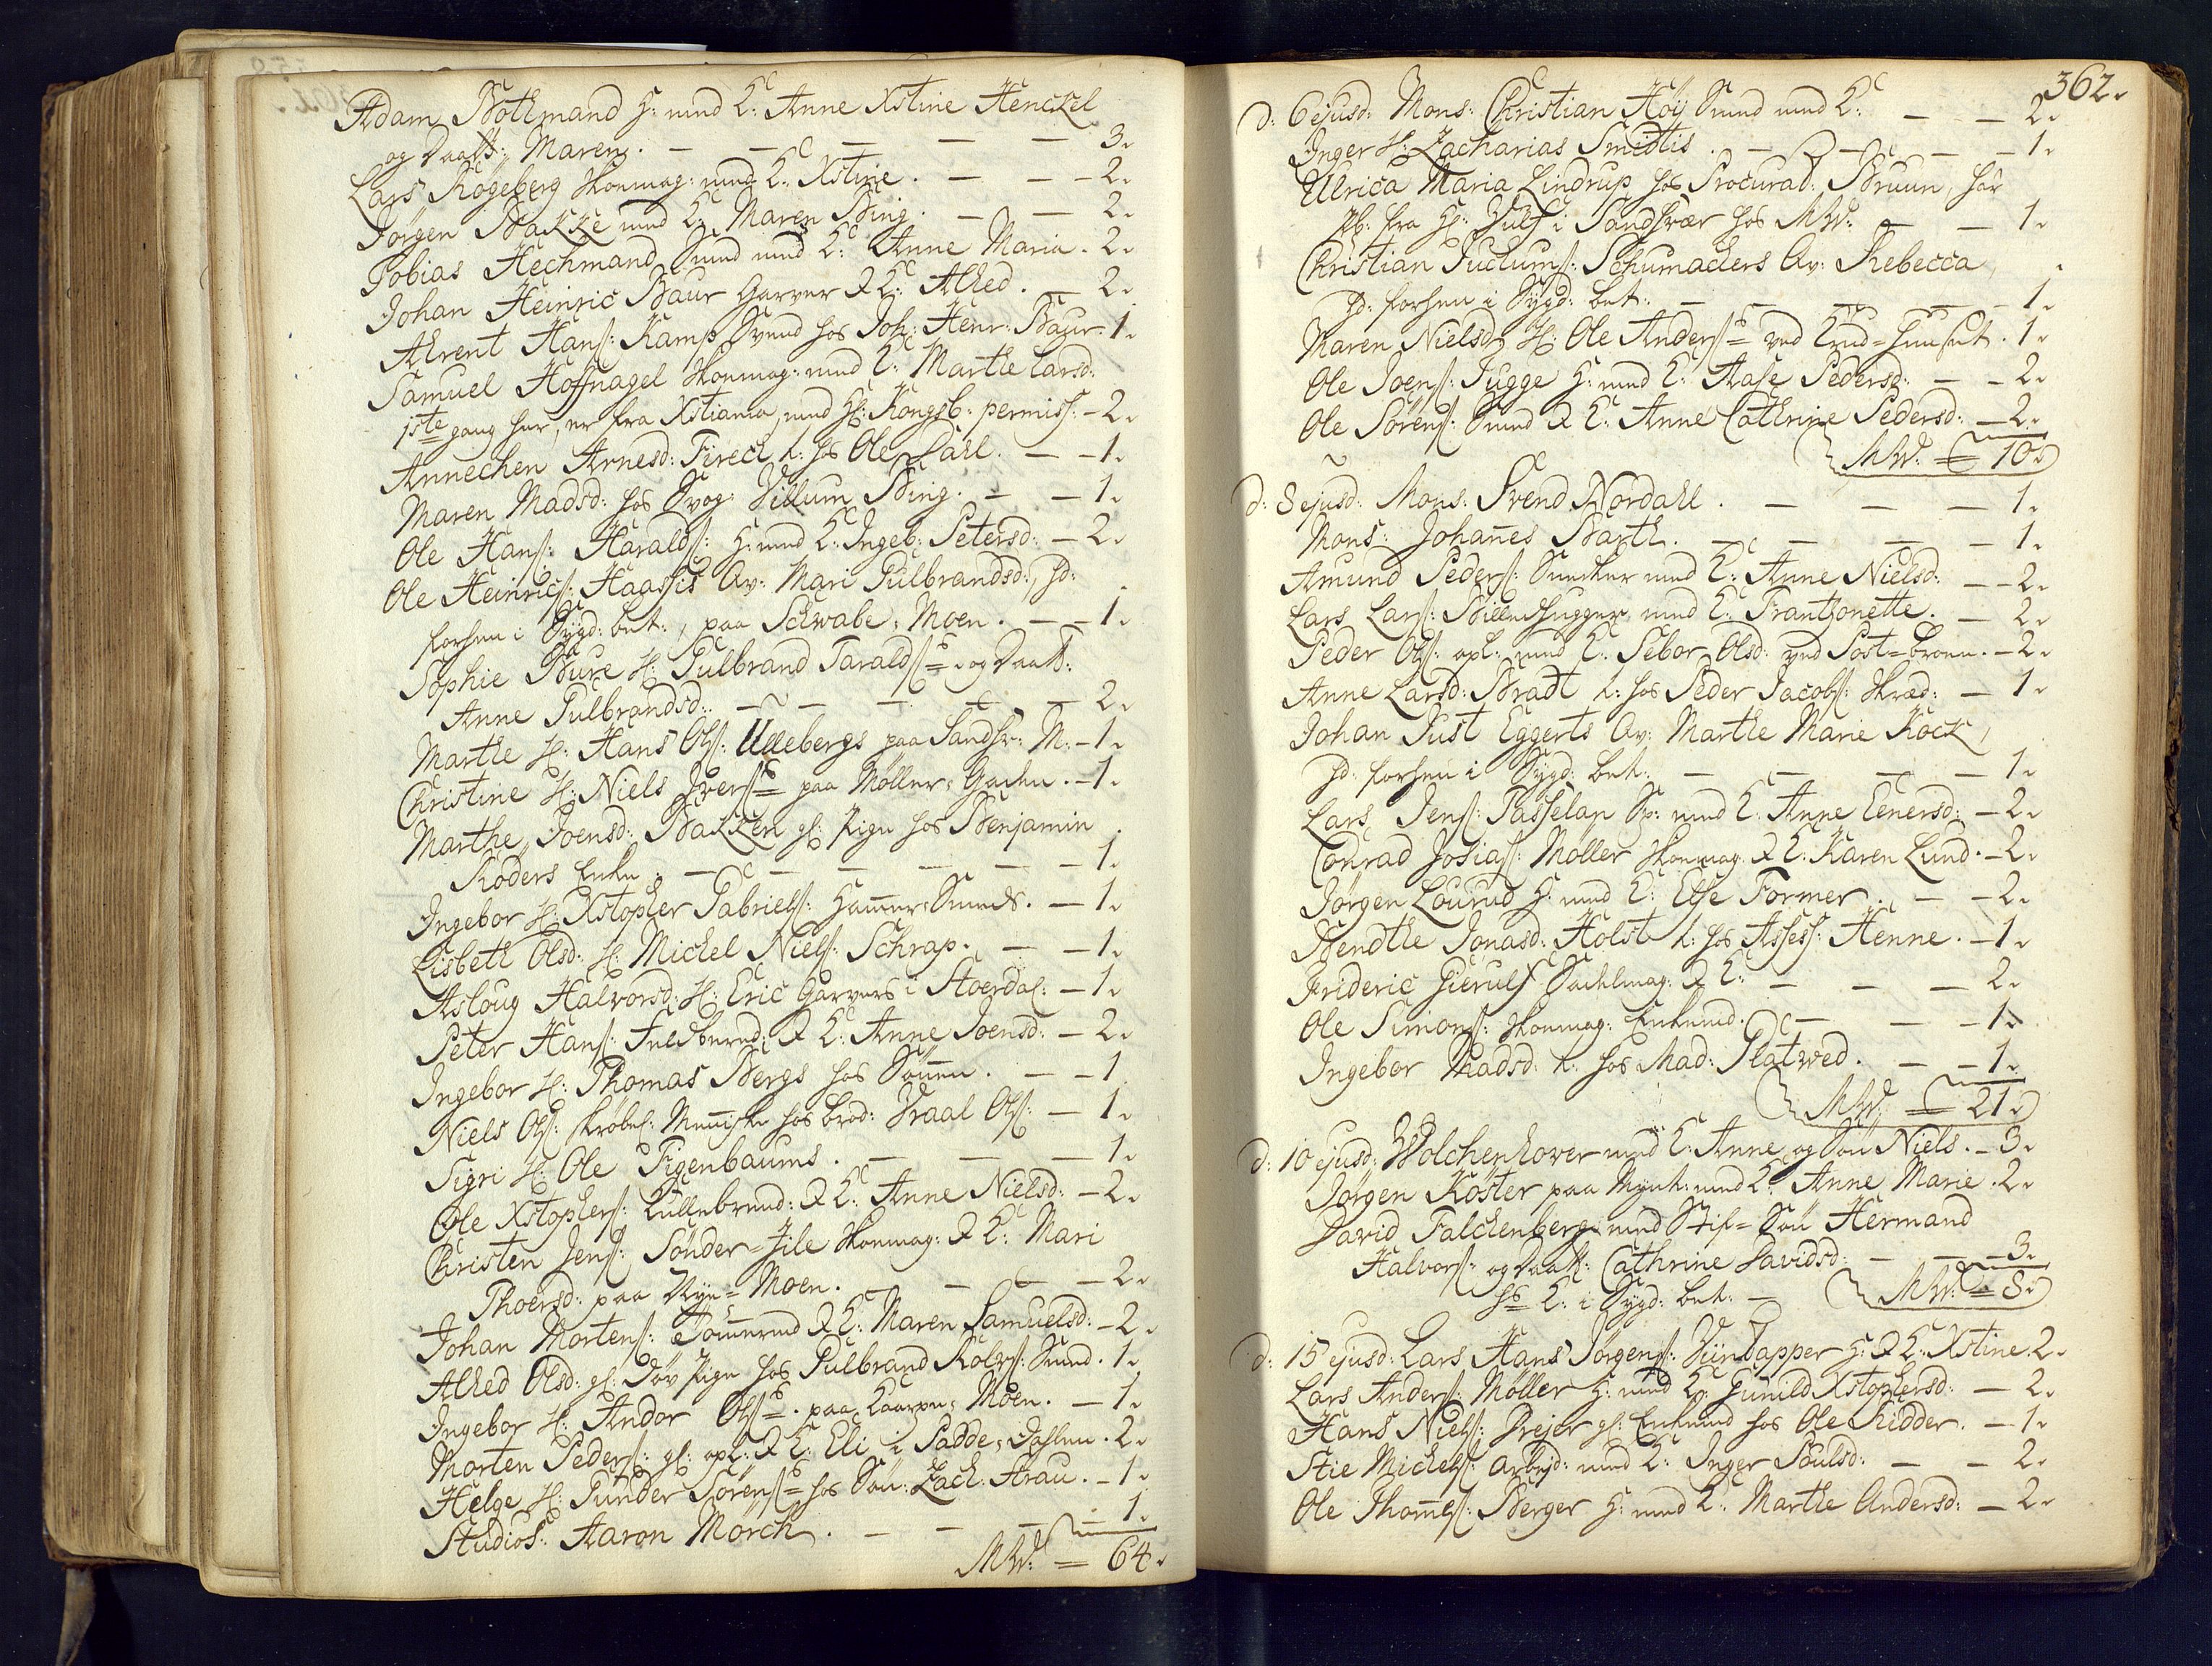 Adam Bothmand H: med K: Anne Xstine Henckel
og Daatt: Maren. — — — — — 3.
Lars Kogeberg Skomag: med K: Xstine. — — 2.
Jørgen Bakke med K: Maren Bing. — — 2.
Tobias Hechmand Smed med K: Anne Maria. 2.
Johan Heinric Baur Garver & K: Ahed. — 2.
Ahrent Hans: Kamp Svend hos Joh: Henr: Baur. 1.
Samuel Hoffnagel Skomag: med K: Marthe Larsd:
1ste gang her, er fra Xstiania, med H: Kongsb: permiss: — 2.
Annechen Arnesd: Firecl t: hos Ole Carl. — — 1.
Maren Madsd: hos Svog: Villum Bing. — — 1.
Ole Hans: Haralds: H: med K: Ingeb: Petersd: — 2.
Ole Heinrics: Haassis Qv: Mari Gulbrandsd:, hd:
forhen i Sygd: bet:, paa Schwabe-Moen. — — 1.
Sophie Bure H: Gulbrand Taralds: og Daatt:
Anne Gulbrandsd: — — — — 2.
Marthe H: Hans Ols: Ullebergs paa Sandsv: M: — 1.
Christine H: Niels Ivers: paa Møller-Gaden. — 1.
Marthe Joensd: Bakken gl: Pige hos Benjamin
Röders Enke. — — — — — 1.
Ingebor H: Xstopher Gabriels: Hammer-Smeds. — 1.
Lisbeth Olsd: H: Michel Niels: Schrap. — — 1.
Asloug Halvorsd: H: Eric Garvers i Stoerdal: — 1.
Peter Hans: Feldbered: & K: Anne Joensd: — 2.
Ingebor H: Thomas Bergs hos Sönnen. — — 1.
Niels Ols: skröbel: Menniske hos Brod: Vraal Ols: — 1.
Sigri H: Ole Figenbaums. — — — 1.
Ole Xstophers: Kullebrend: & K: Anne Nielsd: — 2.
Christen Jens: Sönder-Jile Skomag: & K: Mari
Thoersd: paa Nye-Moen. — — — 2.
Johan Mortens: Tömmermd & K: Maren Samuelsd: — 2.
Ahed Olsd: gl: döv Pige hos Gulbrand Rolvs: Smed. 1.
Ingebor H: Andor Ols: paa Kaarpe-Moen. — 1.
Morten Peders: gl: opl: & K: Eli i Padde-Dahlen. 2.
Helge H: Gunder Sörens: hos Sön: Zach: Strau. — 1.
Studios: Aaron Mörch. — — — 1.
MW: = 64.
362.
d: 6 ejusd: Mons: Christian Höy Smed med K: — — 2.
Inger H: Zacharias Smidtis. — — — — 1.
Ulrica Maria Lindrup hos Procurad: Bruun, har
Pb: fra H: Wulf i Sandsvær hos MW: — — 1.
Christian Juctums: Schumachers Qv: Rebecca,
hd: forhen i Sygd: bet: — — — 1.
Maren Nielsd: H: Ole Anders: ved Krud-Huuset. 1.
Ole Joens: Tugge H: med K: Aase Pedersd: — — 2.
Ole Sörens: Smed & K: Anne Cathrine Pedersd: — 2.
MW: = 10.
d: 8 ejusd: Mons: Svend Nordahl. — — — 1.
Mons: Johannes Barth. — — — — 1.
Amund Peders: Snedker med K: Anne Nielsd: — — 2.
Lars Lars: Billedhugger med K: Frantzonette. — 2.
Peder Ols: opl: med K: Sebor Olsd: ved Post-broen. — 2.
Anne Larsd: Bradt t: hos Peder Jacobs: Skræd: — 1.
Johan Just Eggerts Qv: Marthe Marie Kock,
hd: forhen i Sygd: bet: — — — — 1.
Lars Jens: Passelap Sp: med K: Anne Eenersd: — 2.
Conrad Josias: Möller Skomag: & K: Karen Lund. — 2.
Jörgen Lourud H: med K: Else Former. — — 2.
Bendthe Jonasd: Holst t: hos Assess: Henne. — 1.
Frideric Gierulf Sadelmag: & K: — — — 2.
Ole Simons: Skomag: Enkemd. — — — 1.
Ingebor Madsd: t: hos Mad: Platwed. — — 1.
MW: = 21.
d: 10 ejusd: Wolchenhover med K: Anne og Sön Niels. — 3.
Jörgen Köster paa Mynt: med K: Anne Marie. 2.
David Falchenberg med Stif-Sön Hermand
Halvors: og Daatt: Cathrine Davidsd: — — 3.
hs K: i Sygd: bet: — MW: = 8.
d: 15 ejusd: Lars Hans Jörgens: Viintapper H: & K: Xstine. 2.
Lars Anders: Möller H: med K: Gunild Xstophersd: — 2.
Hans Niels: Drejer gl: Enkemd hos Ole Ridder. — 1.
Stie Michels: arbejd: med K: Inger Poulsd: — — 2.
Ole Thomes: Berger H: med K: Marthe Andersd: — 2.